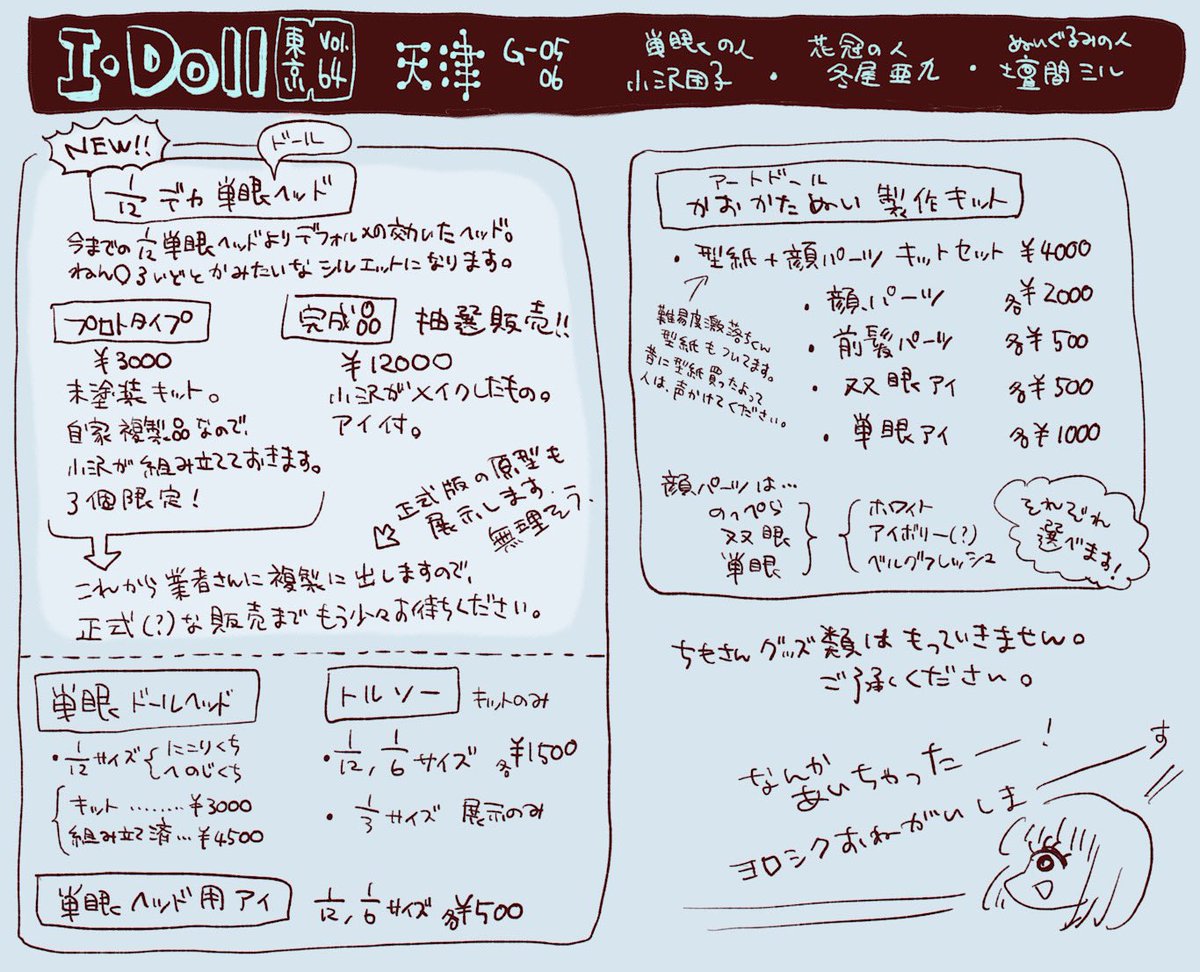 I・Doll 東京 Vol.64
天津 G-05 06
単眼の人 小沢団子 ・ 花冠の人 冬屋亜九 ・ ぬいぐるみの人 壇間ミル
NEW!!
ドール
1/12 デカ単眼ヘッド
今までの1/12単眼ヘッドよりデフォルメの効いたヘッド。
ねん〇ろいどとかみたいなシルエットになります。
プロトタイプ
¥3000
未塗装キット。
自家複製品なので、
小沢が組み立てておきます。
3個限定!
完成品 抽選販売!!
¥12000
小沢がメイクしたもの。
アイ付。
正式版の原型も
展示します
無理そう
これから業者さんに複製に出しますので、
正式(?)な販売までもう少々お待ちください。
単眼ドールヘッド
・1/12サイズ{にこりくち
へのじくち
キット………¥3000
組み立て済…¥4500
トルソー キットのみ
・1/12, 1/6サイズ 各¥1500
・1/3サイズ 展示のみ
単眼ヘッド用アイ 1/12, 1/6サイズ 各¥500
アートドール
かおかたぬい 製作キット
・型紙+顔パーツ キットセット ¥4000
難易度激落ちくん
型紙もついてます。
昔に型紙買ったよって
人は、声かけてください。
・顔パーツ 各¥2000
・前髪パーツ 各¥500
・双眼アイ 各¥500
・単眼アイ 各¥1000
顔パーツは…
のっぺら
双眼
単眼
ホワイト
アイボリー(?)
ベルグフレッシュ
それぞれ
選べます!
ちもさんグッズ類はもっていきません。
ご了承ください。
なんか
あいちゃったー!
ヨロシクおねがいしまーす